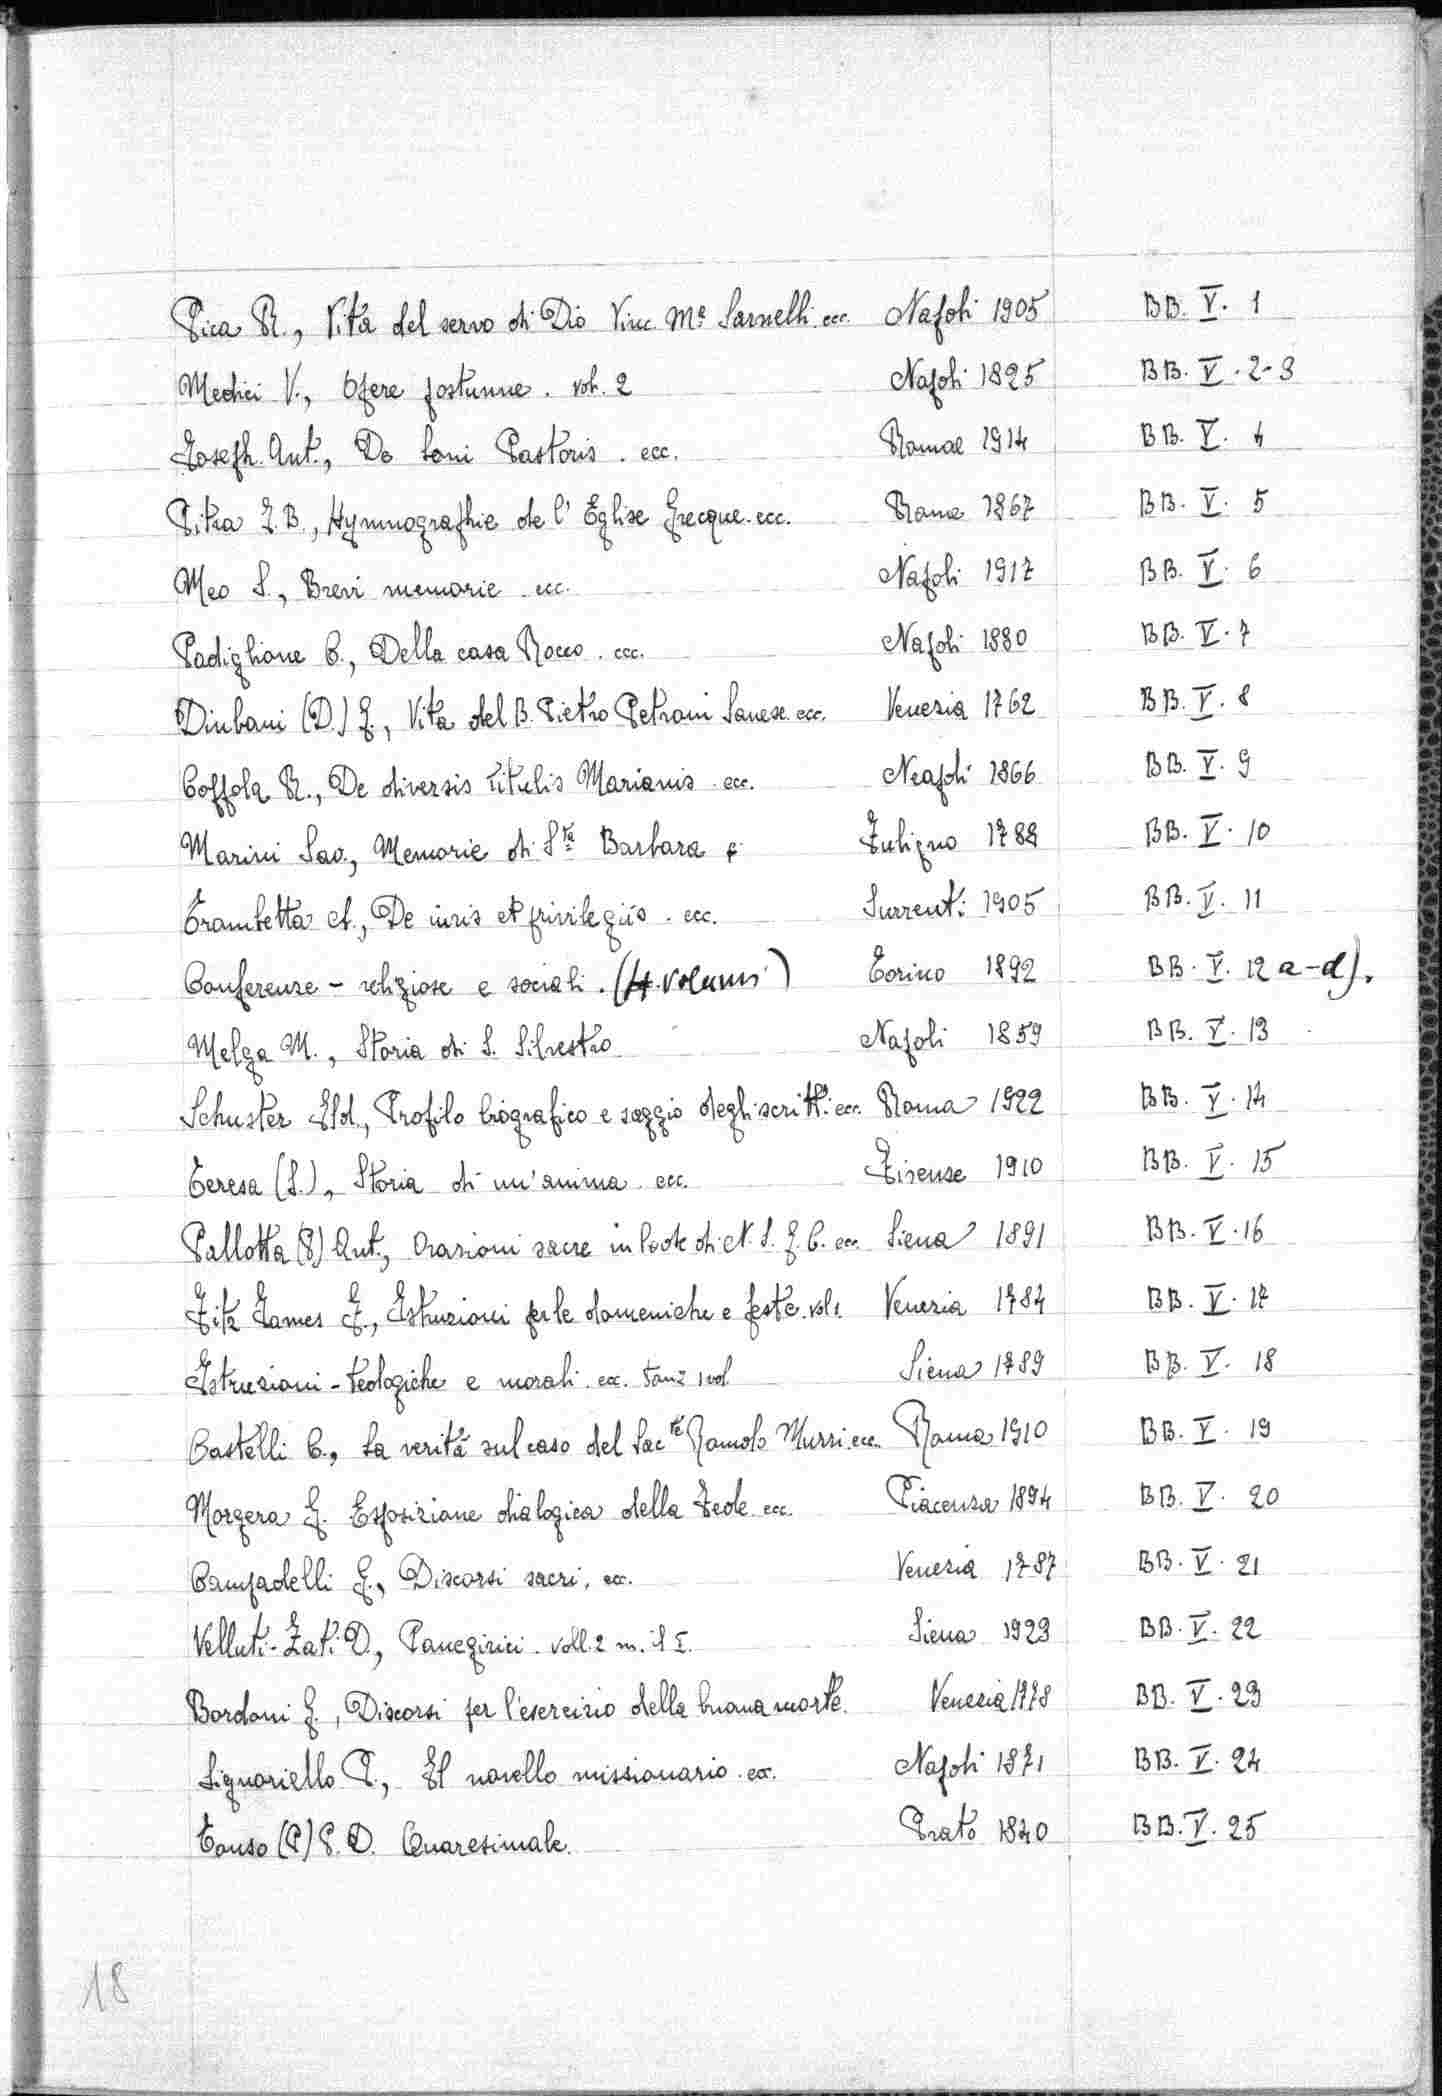 Pica R., Vita del servo di Dio Vinc. Mª Sarnelli ecc. Napoli 1905 BB. V. 1
Medici V., Opere postume. vol. 2 Napoli 1825 BB. V. 2-3
Joseph. Ant., De boni Pastoris. ecc. Romae 1914 BB. V. 4
Pitra J. B., Hymnographie de l'Eglise grecque. ecc. Rome 1867 BB. V. 5
Meo S., Brevi memorie ecc. Napoli 1917 BB. V. 6
Padiglione C., Della casa Rocco. ecc. Napoli 1880 BB. V. 7
Dinbani (D.) G., Vita del B. Pietro Petroni Sanese ecc. Venezia 1762 BB. V. 8
Coppola R., De diversis titulis Marianis. ecc. Neapoli 1866 BB. V. 9
Marini Sav., Memorie di Sta Barbara Fuligno 1788 BB. V. 10
Trombetta A., De iuris et privilegiis. ecc. Surrenti 1905 BB. V. 11
Conferenze - religiose e sociali. (4 volumi) Torino 1892 BB. V. 12 a-d).
Melga M., Storia di S. Silvestro Napoli 1859 BB. V. 13
Schuster Ild., Profilo biografico e saggio degli scritti ecc. Roma 1922 BB. V. 14
Teresa (S.), Storia di un'anima ecc. Firenze 1910 BB. V. 15
Pallotta (P.) Ant., Orazioni sacre in lode di N. S. G. C. ecc. Siena 1891 BB. V. 16
Fitz James F., Istruzioni per le domeniche e feste. vol. Venezia 1784 BB. V. 17
Istruzioni - teologiche e morali ecc. tom 2 1 vol. Siena 1789 BB. V. 18
Castelli C., La verità sul caso del Sacte Romolo Murri ecc. Roma 1910 BB. V. 19
Morgera G. Esposizione dialogica della Fede ecc. Piacenza 1894 BB. V. 20
Campadelli G., Discorsi sacri, ecc. Venezia 1787 BB. V. 21
Velluti-Zati D., Panegirici. voll. 2 m. il I. Siena 1923 BB. V. 22
Bordoni G., Discorsi per l'esercizio della buona morte. Venezia 1778 BB. V. 23
Signoriello P., Il novello missionario. ecc. Napoli 1871 BB. V. 24
Tonso (P.) P. D. Quaresimale. Prato 1840 BB. V. 25
18